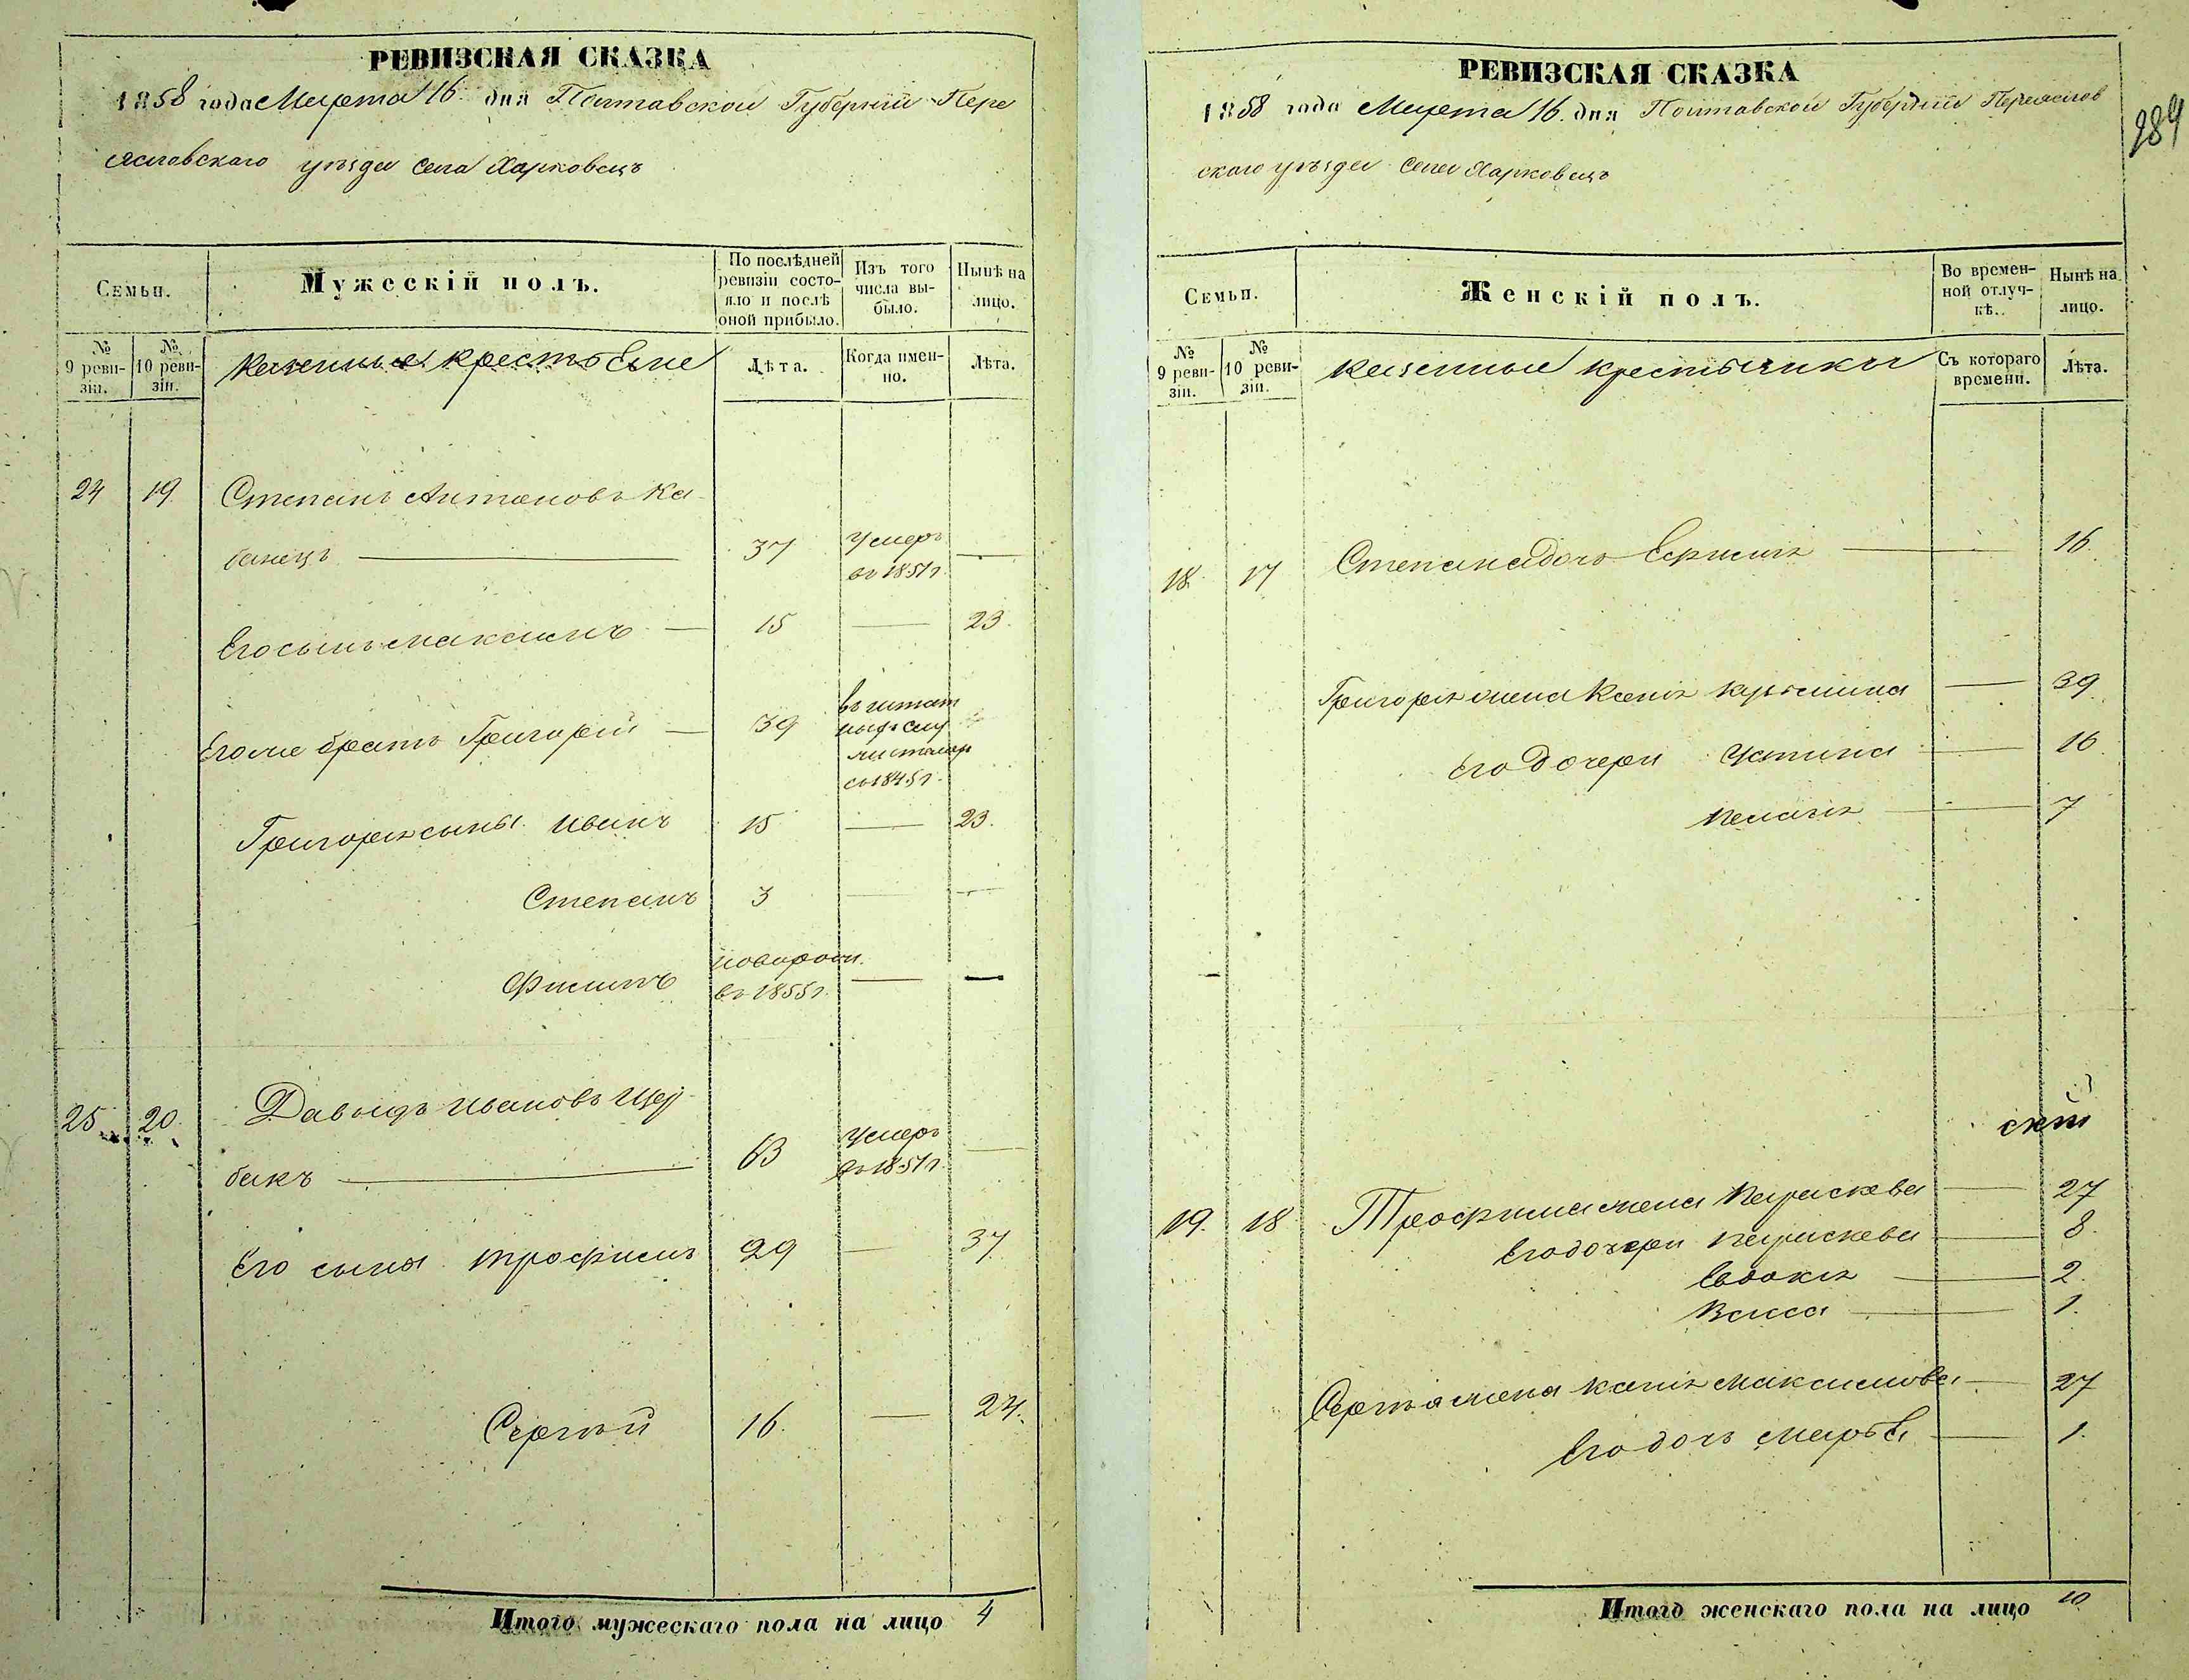 РЕВИЗСКАЯ СКАЗКА
1858 года Марта 16. дня Полтавской Губернии Пере
яславскаго уѣзда села Харковецъ
Семьи.
Мужескій полъ.
По послѣдней ревизіи состояло и послѣ оной прибыло.
Изъ того числа выбыло.
Нынѣ на лицо.
№ 9 ревизіи.
№ 10 ревизіи.
Казенные крестьяне
Лѣта.
Когда именно.
Лѣта.
24 19 Степанъ Антоновъ Ка-
банецъ — 37 Умеръ въ 1851 г. —
Его сынъ Максимъ — 15 — 23.
Его же братъ Григорій — 39 съ 1845 г.
Григорія сыны Иванъ 15 — 23.
Степанъ 3 — —
Филипъ новорож. въ 1855 г. — —
25 20. Давыдъ Ивановъ Щер-
бакъ — 63 Умеръ въ 1851 г. —
Его сыны Трофимъ 29 — 37
Сергѣй 16. — 24.
Итого мужескаго пола на лицо 4
РЕВИЗСКАЯ СКАЗКА
1858 года Марта 16. дня Полтавской Губерніи Переяслов
скаго уѣзда села Харковецъ
284
Семьи.
Женскій полъ.
Во временной отлучкѣ.
Нынѣ на лицо.
№ 9 ревизіи.
№ 10 ревизіи.
Казенные крестьянки
Съ котораго времени.
Лѣта.
18. 17 Степана дочь — 16.
Григорія жена Ксенія — 39
Его дочери Устина — 16.
Пелагія — 7
19. 18 Трофима жена Параскева — 27
Его дочери Параскева — 8.
Евдокія — 2.
Васса — 1.
Сергѣя жена Ксенія Максимова — 27
Его дочь Марья — 1.
Итого женскаго пола на лицо 10